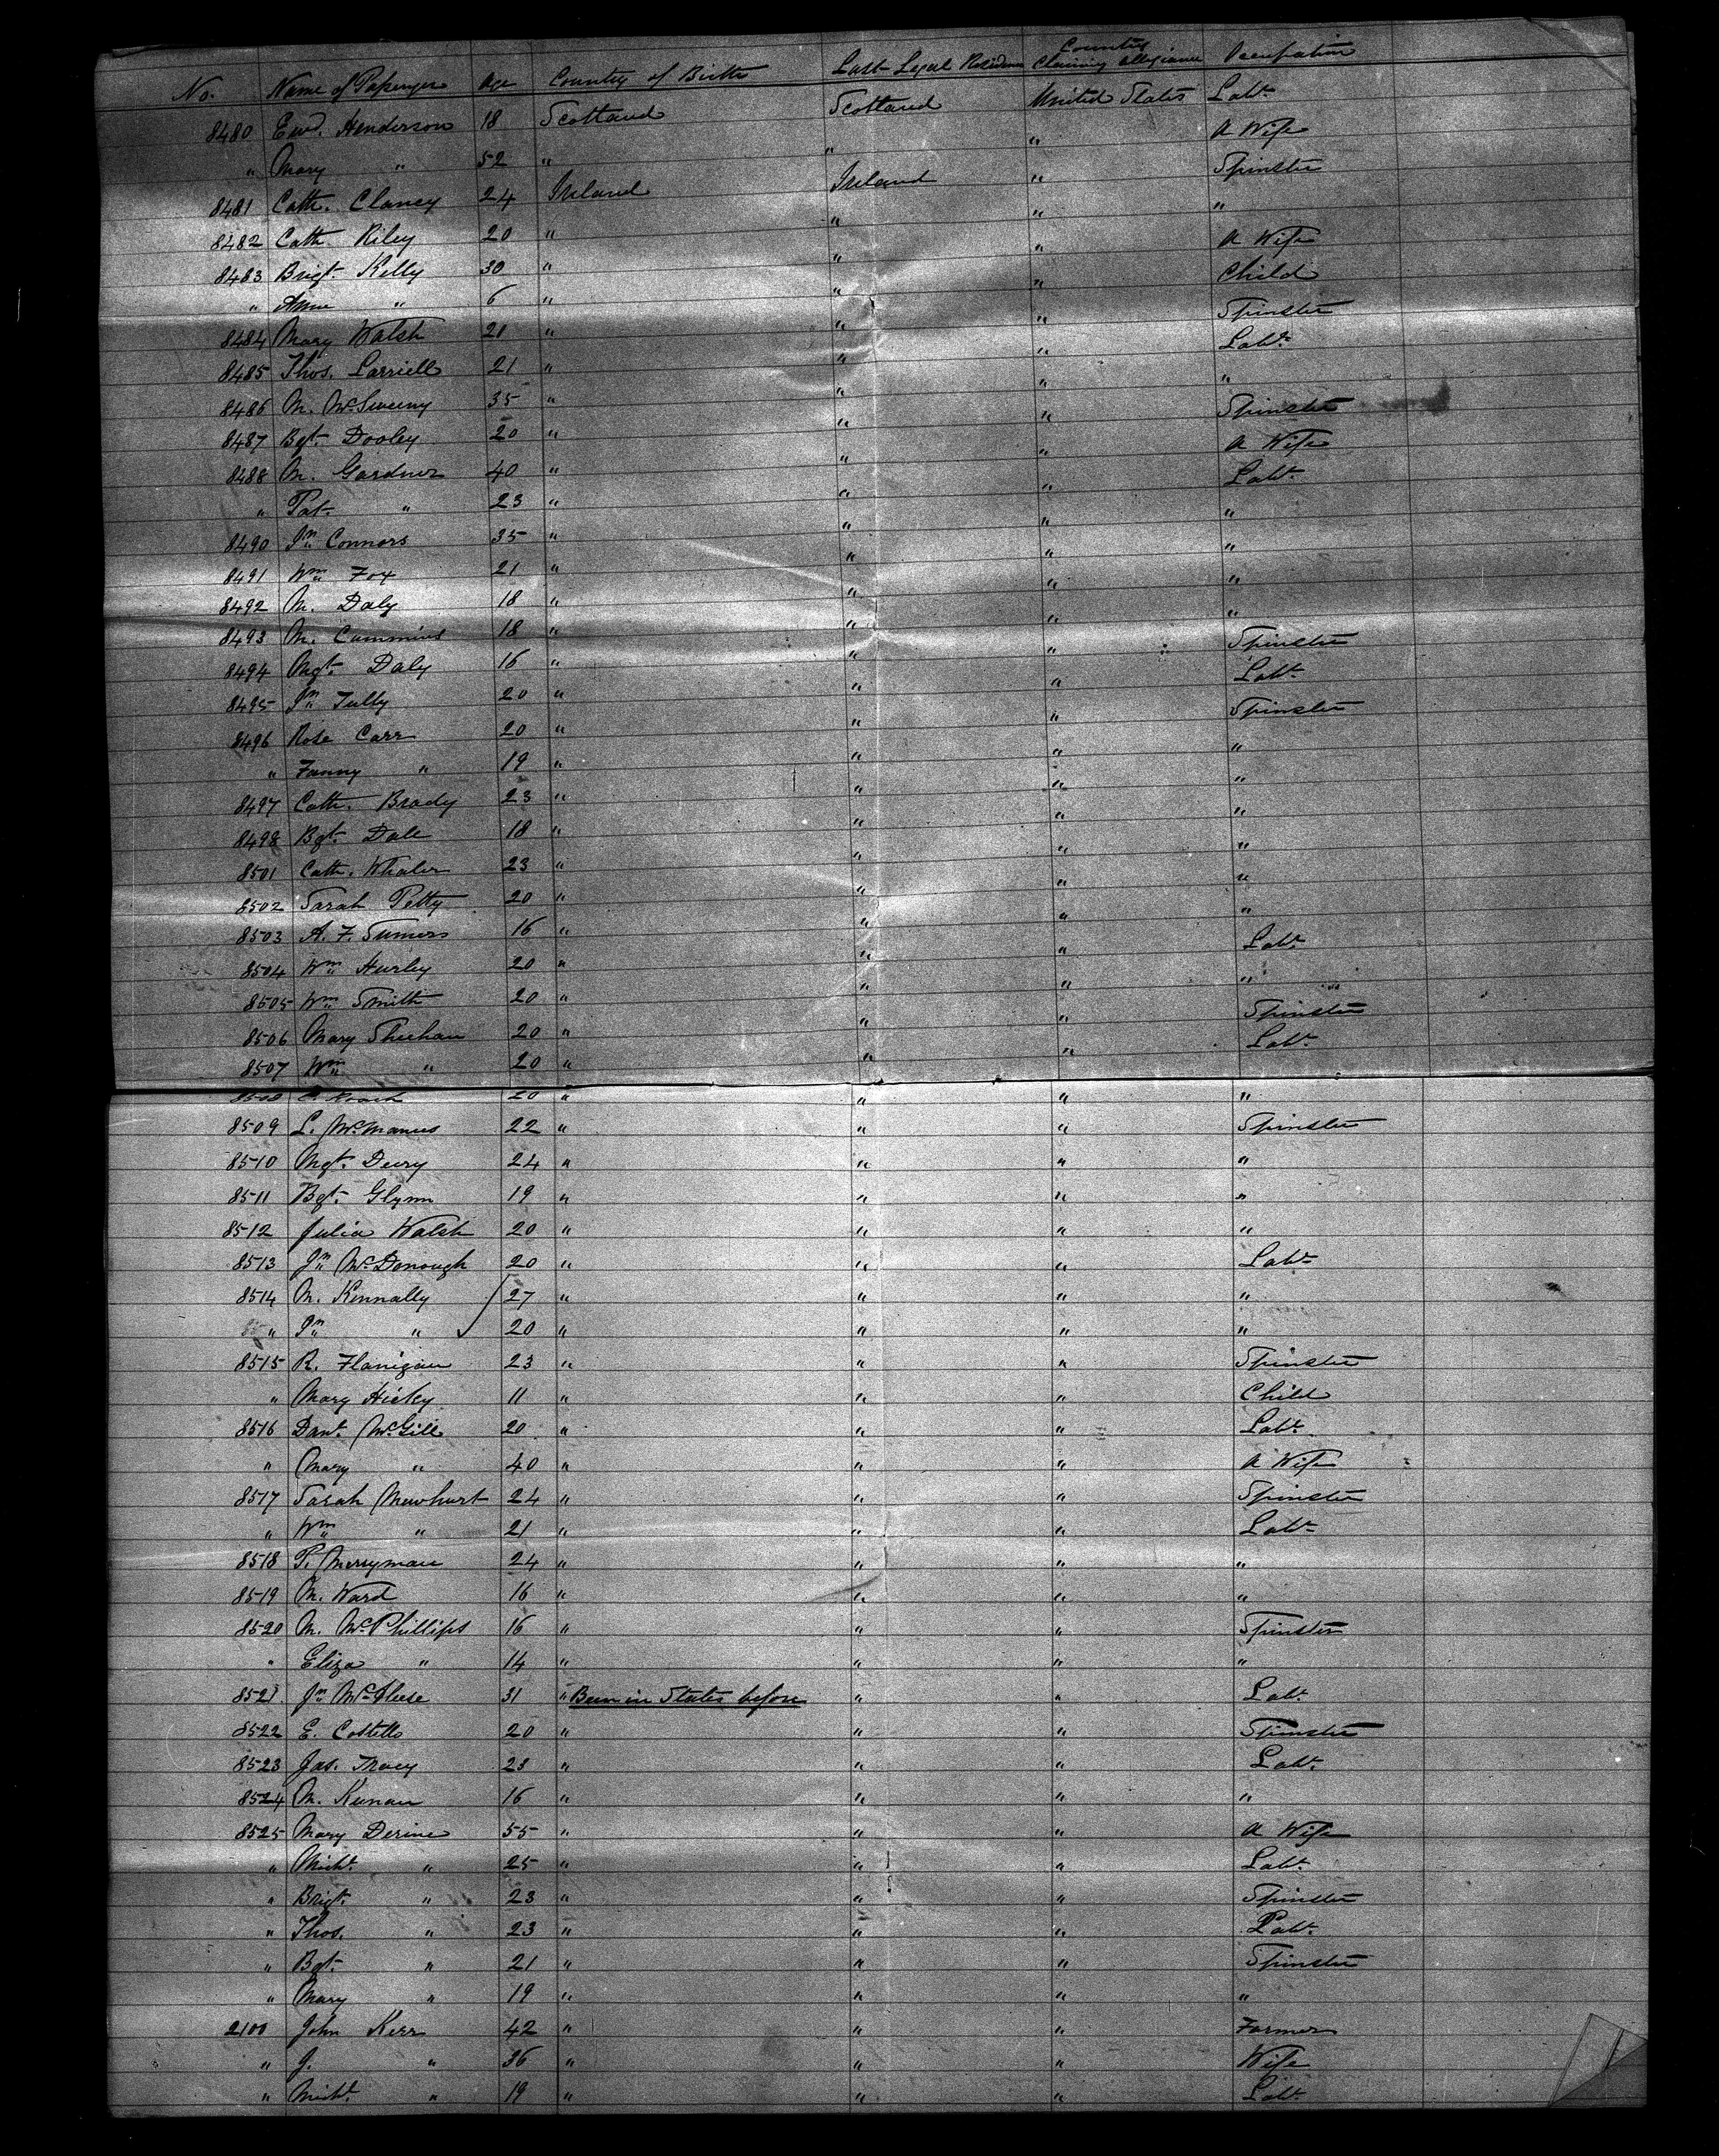 No. Name of Passenger Age Country of Birth Last Legal Residence Country Claiming Allegiance Occupation
8480 Ewd. Henderson 18 Scotland Scotland United States Labr.
" Mary " 52 " " " A Wife
8481 Cath. Clancy 24 Ireland Ireland " Spinster
8482 Cath Riley 20 " " " "
8483 Brigt. Kelly 30 " " " A Wife
" Anne " 6 " " " Child
8484 Mary Walsh 21 " " " Spinster
8485 Thos. Larriell 21 " " " Labr.
8486 M. McSweeny 35 " " " "
8487 Bgt. Dooley 20 " " " Spinster
8488 M. Gardner 40 " " " A Wife
" Pat. " 23 " " " Labr.
8490 Jn Connors 35 " " " "
8491 Wm Fox 21 " " " "
8492 M. Daly 18 " " " "
8493 M. Cummins 18 " " " "
8494 Mgt. Daly 16 " " " Spinster
8495 Jn Tully 20 " " " Labr.
8496 Rose Carr 20 " " " Spinster
" Fanny " 19 " " " "
8497 Cath. Brady 23 " " " "
8498 Bgt. Dale 18 " " " "
8501 Cath. Whalen 23 " " " "
8502 Sarah Petty 20 " " " "
8503 A. F. Sumers 16 " " " "
8504 Wm Hurley 20 " " " Labr.
8505 Wm Smith 20 " " " "
8506 Mary Sheehan 20 " " " Spinster
8507 Wm " 20 " " " Labr.
8508 Roach 20 " " " "
8509 L. McManus 22 " " " Spinster
8510 Mgt. Deery 24 " " " "
8511 Bgt. Glynn 19 " " " "
8512 Julia Walsh 20 " " " "
8513 Jn McDonough 20 " " " Labr.
8514 M. Kennally 27 " " " "
" Jn " 20 " " " "
8515 R. Flanigan 23 " " " Spinster
" Mary Hickey 11 " " " Child
8516 Danl. McGill 20 " " " Labr.
" Mary " 40 " " " A Wife
8517 Sarah Mewhurt 24 " " " Spinster
" Wm " 21 " " " Labr.
8518 P. Merryman 24 " " " "
8519 M. Ward 16 " " " "
8520 M. McPhillips 16 " " " Spinster
" Eliza " 14 " " " "
8521 Jn 31 " Been in States before " " Labr.
8522 E. Costello 20 " " " Spinster
8523 Jas. Tracy 23 " " " Labr.
8524 M. Keenan 16 " " " "
8525 Mary Derine 55 " " " A Wife
" Michl. " 25 " " " Labr.
" Brigt. " 23 " " " Spinster
" Thos. " 23 " " " Labr.
" Bgt. " 21 " " " Spinster
" Mary " 19 " " " "
2100 John Kerr 42 " " " Farmer
" J. " 36 " " " Wife
" Michl. " 19 " " " Labr.